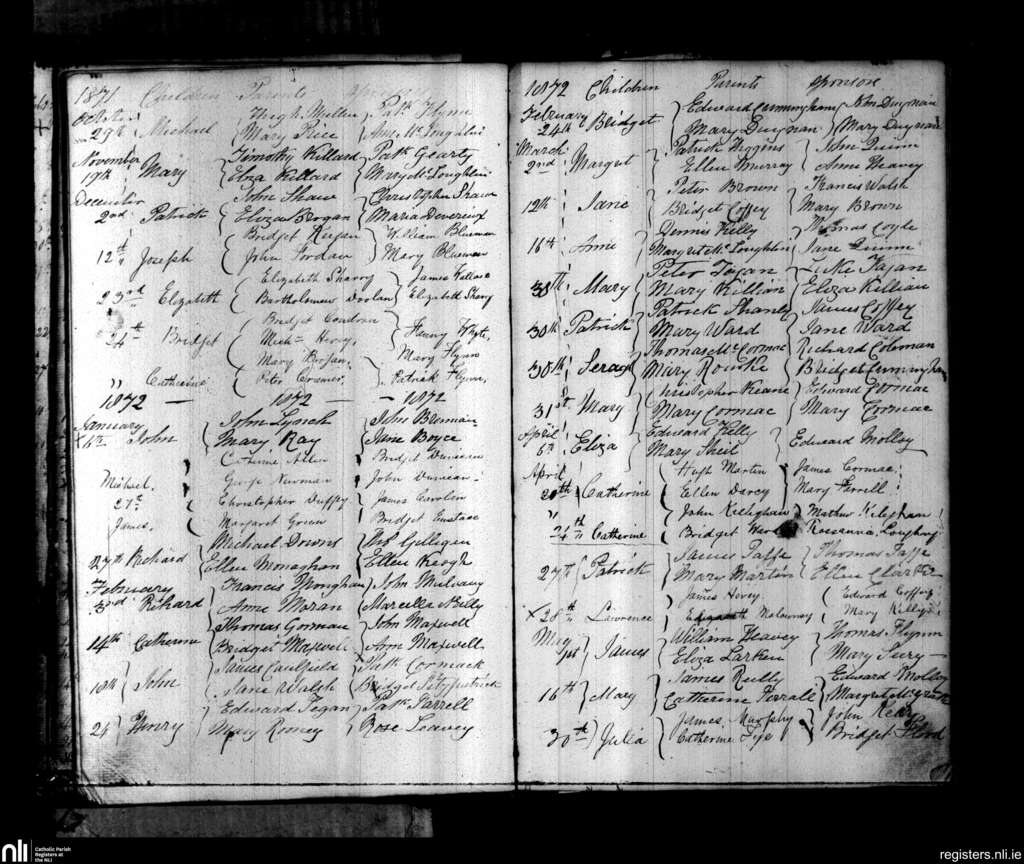 1871 Children Parents Sponsors
October Hugh Mullen Patk Flynn
29th Michael Mary Rice Ann McLoughlin
November Timothy Killard Patk Gearty
19th Mary Eliza Killard Mary McLoughlin
December John Shaw Christopher Shaw
2nd Patrick Eliza Brogan Maria Devereux
Bridget Keegan William Blueman
12th Joseph John Jordan Mary Blueman
Elizabeth Sharry James
23rd Elizabeth Bartholomew Dorlan Elizabeth Sharry
Bridget Condron
24th Bridget Mich Henry Henry Whyte
Mary Brogan Mary Flynn
" Catherine Peter Cramer Patrick Flynn
1872 1872 1872
January John Lynch John Brennan
X 6th John Mary Kay Jane Boyce
Catherine Allen Bridget Duncan
Michael George Newman John Duncan
27th Christopher Duffy James Carolin
James Margaret Green Bridget Eustace
Michael Downs Jas Gilligan
27th Richard Ellen Monaghan Ellen Keogh
February Francis Monghan John Mulvany
3rd Richard Anne Moran Marcella Nelly
Thomas Gorman John Maxwell
14th Catherine Bridget Maxwell Ann Maxwell
James Caulfield Patk Cormack
18th John Jane Walsh Bridget Fitzpatrick
Edward Fegan Patk Farrell
24 Henry Mary Rooney Rose Leavy
1872 Children Parents Sponsors
February Edward Cunningham John Duignan
24th Bridget Mary Duignan Mary Duignan
March Patrick Higgins John Quinn
2nd Margret Ellen Murray Anne Heavey
Peter Brown Francis Walsh
12th Jane Bridget Coffey Mary Brown
Dennis Kelly Thomas Coyle
16th Anne Margret McLoughlin Jane Quinn
Peter Fagan Luke Fagan
30th Mary Mary Killian Eliza Killian
Patrick Shanly James Coffey
30th Patrick Mary Ward Jane Ward
Thomas McCormac Richard Coleman
30th Mary Rourke Bridget Cunningham
Christopher Keane Edward Cormac
31st Mary Mary Cormac Mary Cormac
April Edward Kelly
6th Eliza Mary Sheil Edward Molloy
April Hugh Martin James Cormac
20th Catherine Ellen Darcy Mary Farrell
" John Kileghan Mathew Kileghan
24th Catherine Bridget Rosanna
James Taffe Thomas Taffe
27th Patrick Mary Martin Ellen Clarke
James Hovey Edward Coffey
X 28th Lawrence Elizabeth Mulowney Mary Kelly
May William Heavey Thomas Flynn
1st James Eliza Larken Mary Seery
James Reilly Edward Molloy
16th Mary Catherine Farrale Margret McGrath
James Murphy John Kear
30th Julia Catherine Tye Bridget Flood
nli
Catholic Parish
Registers at
the NLI
registers.nli.ie